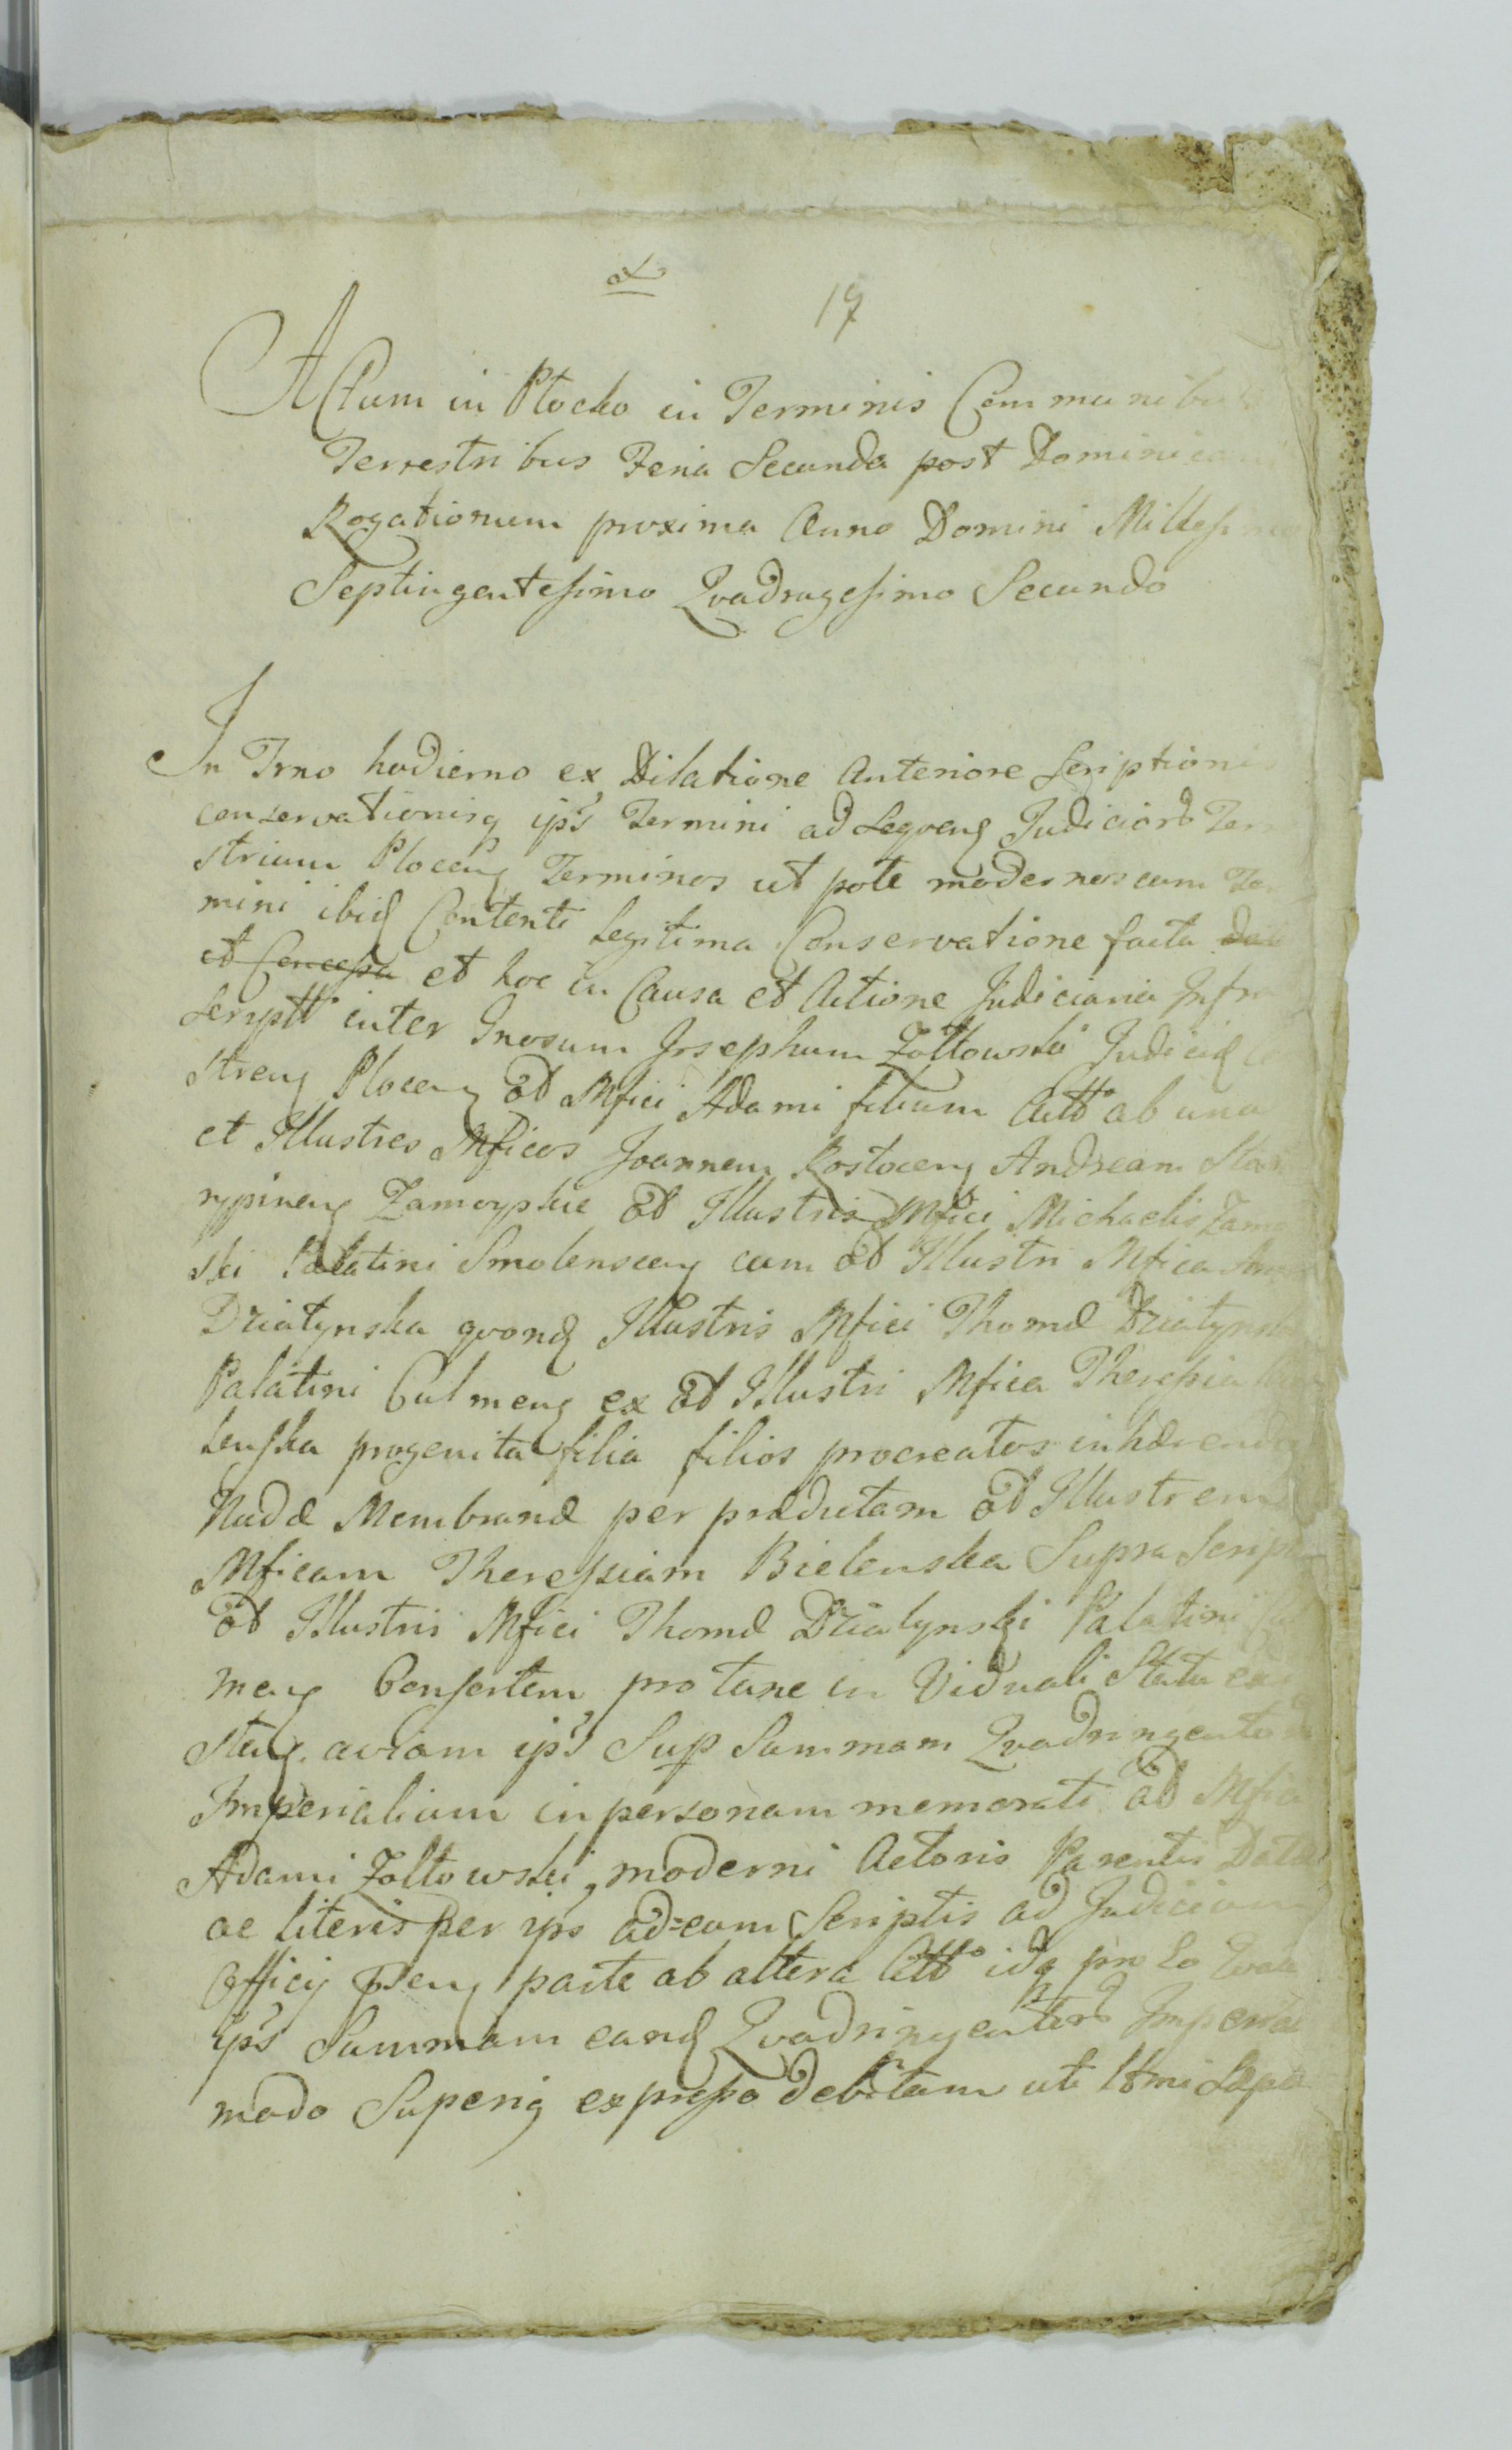 17
Actum in Płocko in Terminis Communibus
Terrestribus Feria Secunda post Dominicam
Rogationum proxima Anno Domini Millesimo
Septingentesimo Qvadragesimo Secundo
In Trno hodierno ex Dilatione Anteriore Scriptionis
conservationisq ips Termini ad Seqveng Judiciord Ter
strium Ploceng Terminos ut pote modernos cum Ter
mini ibid Contenti Legitima Conservatione facta
et Concessa et hoc in Causa et Actione Judiciaria Infra
Script inter Gnosum Josephum Zołtowski Judicid
streng Ploceng Mfici Adami filium Actt ab una
et Illustres Mficos Joannem Rostoceng Andream Sta
rypineng Zamoyskie Illustris Mfici Michaelis Zamo
ski Palatini Smolensceng cum Illustri Mfica
Działynska qvond Illustris Mfici Thomæ Działynski
Palatini Culmeng ex Illustri Mfica Theressia
lenska progenita filia filios procreatos inhærendo
Nudæ Membranæ per prædictam Illustrem
Mficam Theressiam Bielenska Supra Script
Illustris Mfici Thomæ Działynski Palatini Cul
meng Consortem pro tunc in Viduali Statu exi
steng aviam ips Sup Summam Qvadringento
Imperialium in personam memorati Mfici
Adami Zołtowski, moderni Actoris Parentis Data
ac literis per ips ad=eum Scriptis ad Judicium
Officij pseng parte ab altera Citt idq pro Eo Qvia
ips Summam eand Qvadringentord Imperia
modo Superiq expresso debitam uti